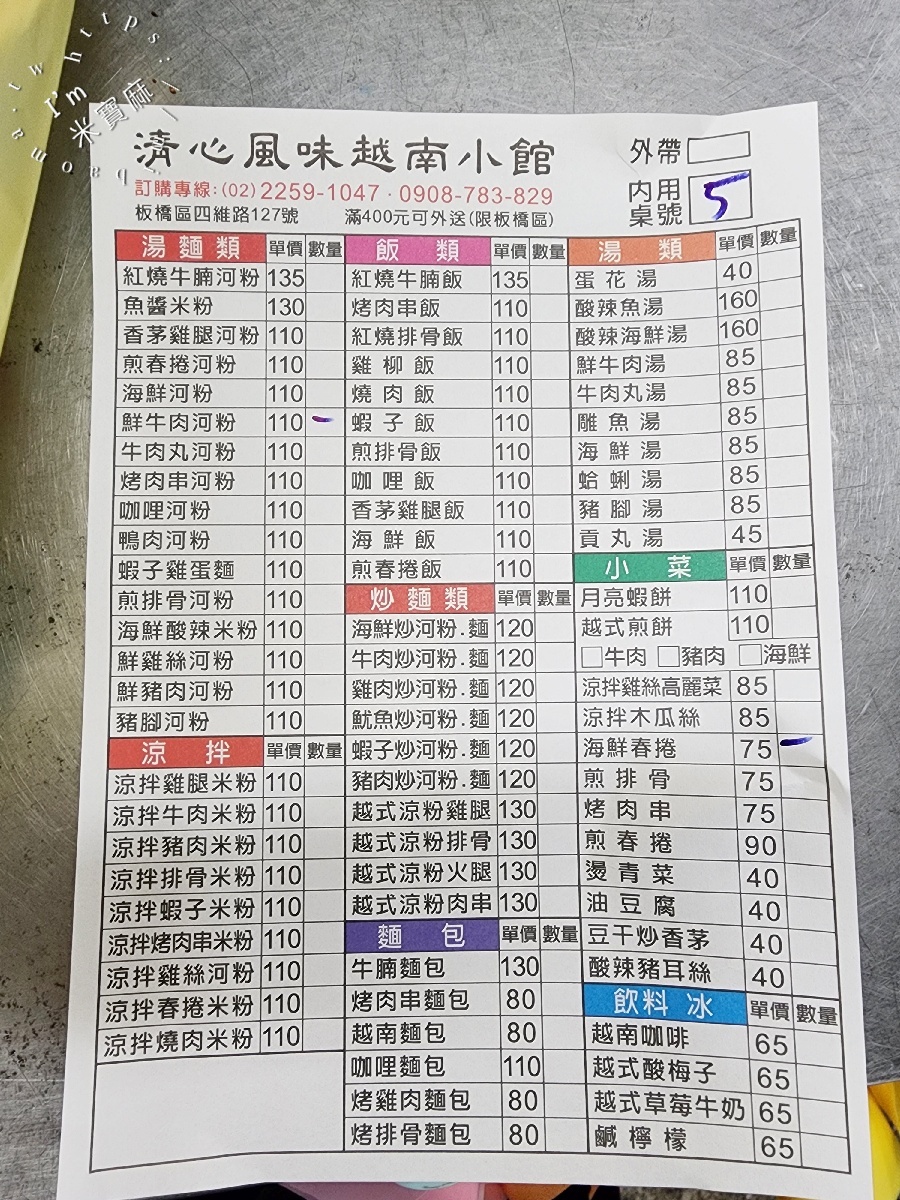 https:
I'm
米寶麻
清心風味越南小館
外帶
訂購專線:(02) 2259-1047 · 0908-783-829
內用
桌號 5
板橋區四維路127號 滿400元可外送(限板橋區)
湯麵類 單價 數量
紅燒牛腩河粉 135
魚醬米粉 130
香茅雞腿河粉 110
煎春捲河粉 110
海鮮河粉 110
鮮牛肉河粉 110 一
牛肉丸河粉 110
烤肉串河粉 110
咖哩河粉 110
鴨肉河粉 110
蝦子雞蛋麵 110
煎排骨河粉 110
海鮮酸辣米粉 110
鮮雞絲河粉 110
鮮豬肉河粉 110
豬腳河粉 110
涼拌 單價 數量
涼拌雞腿米粉 110
涼拌牛肉米粉 110
涼拌豬肉米粉 110
涼拌排骨米粉 110
涼拌蝦子米粉 110
涼拌烤肉串米粉 110
涼拌雞絲河粉 110
涼拌春捲米粉 110
涼拌燒肉米粉 110
飯類 單價 數量
紅燒牛腩飯 135
烤肉串飯 110
紅燒排骨飯 110
雞柳飯 110
燒肉飯 110
蝦子飯 110
煎排骨飯 110
咖哩飯 110
香茅雞腿飯 110
海鮮飯 110
煎春捲飯 110
炒麵類 單價 數量
海鮮炒河粉.麵 120
牛肉炒河粉.麵 120
雞肉炒河粉.麵 120
魷魚炒河粉.麵 120
蝦子炒河粉.麵 120
豬肉炒河粉.麵 120
越式涼粉雞腿 130
越式涼粉排骨 130
越式涼粉火腿 130
越式涼粉肉串 130
麵包 單價 數量
牛腩麵包 130
烤肉串麵包 80
越南麵包 80
咖哩麵包 110
烤雞肉麵包 80
烤排骨麵包 80
湯類 單價 數量
蛋花湯 40
酸辣魚湯 160
酸辣海鮮湯 160
鮮牛肉湯 85
牛肉丸湯 85
雕魚湯 85
海鮮湯 85
蛤蜊湯 85
豬腳湯 85
貢丸湯 45
小菜 單價 數量
月亮蝦餅 110
越式煎餅 110
□牛肉 □豬肉 □海鮮
涼拌雞絲高麗菜 85
涼拌木瓜絲 85
海鮮春捲 75 一
煎排骨 75
烤肉串 75
煎春捲 90
燙青菜 40
油豆腐 40
豆干炒香茅 40
酸辣豬耳絲 40
飲料冰 單價 數量
越南咖啡 65
越式酸梅子 65
越式草莓牛奶 65
鹹檸檬 65